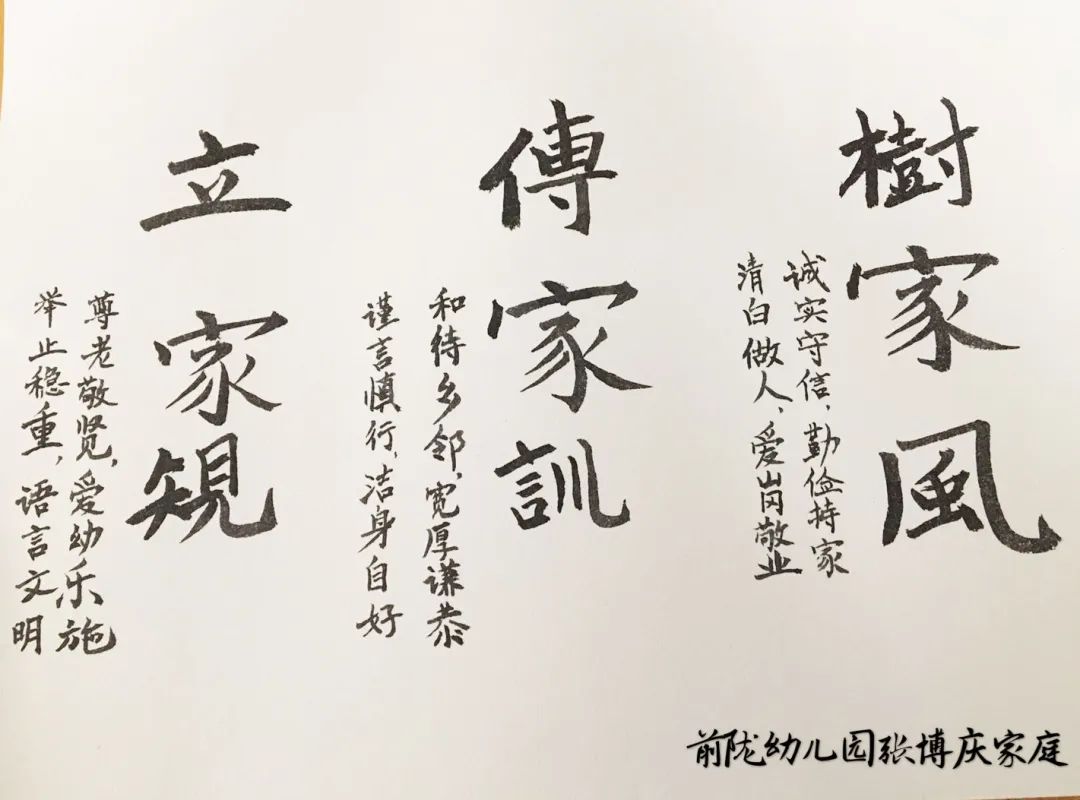 樹家風
诚实守信，勤俭持家
清白做人，爱岗敬业
傳家訓
和待乡邻，宽厚谦恭
谨言慎行，洁身自好
立家規
尊老敬贤，爱幼乐施
举止稳重，语言文明
前陇幼儿园张博庆家庭